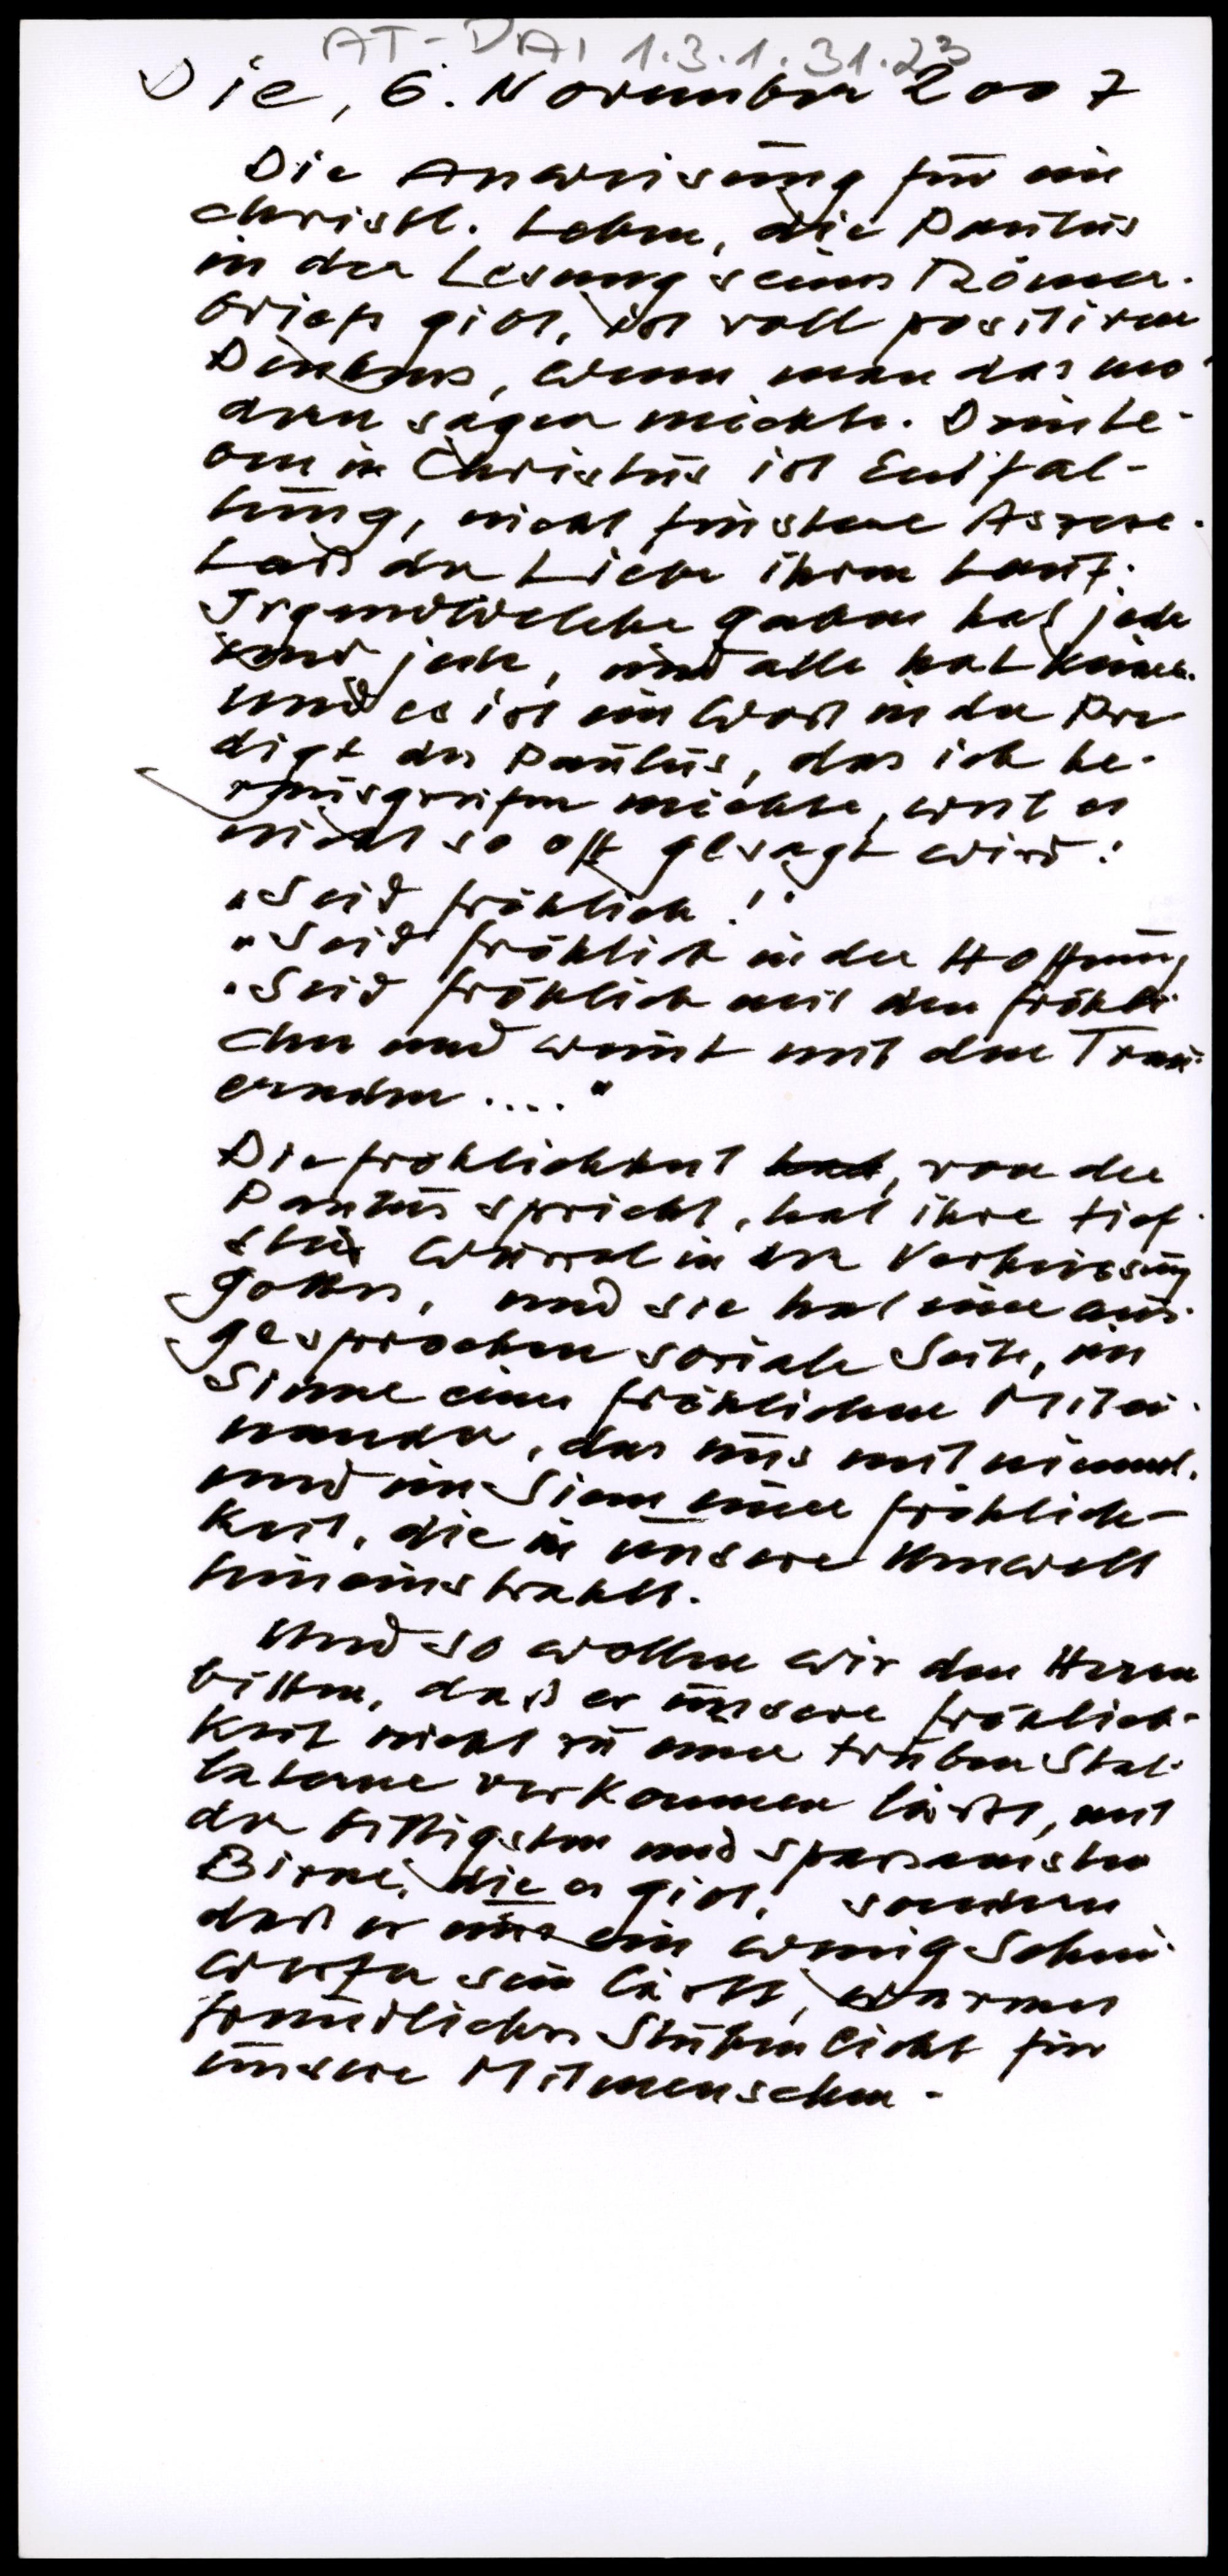 AT-DAI 1.3.1.31.23
Die, 6. November 2007
Die Anweisung für ein
christl. Leben, die Paulus
in der Lesung seines Römer-
briefs gibt, ist voll positiven
Denkens, wenn man das mo-
dern sagen möchte. Drinle-
ben in Christus ist Entfal-
tung, nicht finstere Aszese.
Laß der Liebe ihren Lauf.
Irgendwelche Gaben hat jeder
und jede, und alle hat keiner.
Und es ist ein Wort in der Pre
digt des Paulus, das ich he-
rausgreifen möchte, weil es
nicht so oft gesagt wird:
"Seid fröhlich!"
"Seid fröhlich in der Hoffnung
"Seid fröhlich mit den Fröhli
chen und weint mit den Trau-
ernden ...."
Die Fröhlichkeit, von der
Paulus spricht, hat ihre tief-
ste Wurzel in der Verheissung
Gottes, und sie hat eine aus-
gesprochen soziale Seite, im
Sinne eines fröhlichen Mitei-
nander, das uns mitnimmt.
und im Sinn einer Fröhlich-
keit, die in unsere Umwelt
hineinstrahlt.
Und so wollen wir den Herrn
bitten, daß er unsere Fröhlich-
keit nicht zu einer trüben Stal-
laterne verkommen läßt, mit
der billigsten und sparsamsten
Birne, die es gibt, sondern
daß er uns ein wenig Schein-
werfer sein läßt, warmes
freundliches Stubenlicht für
unsere Mitmenschen.